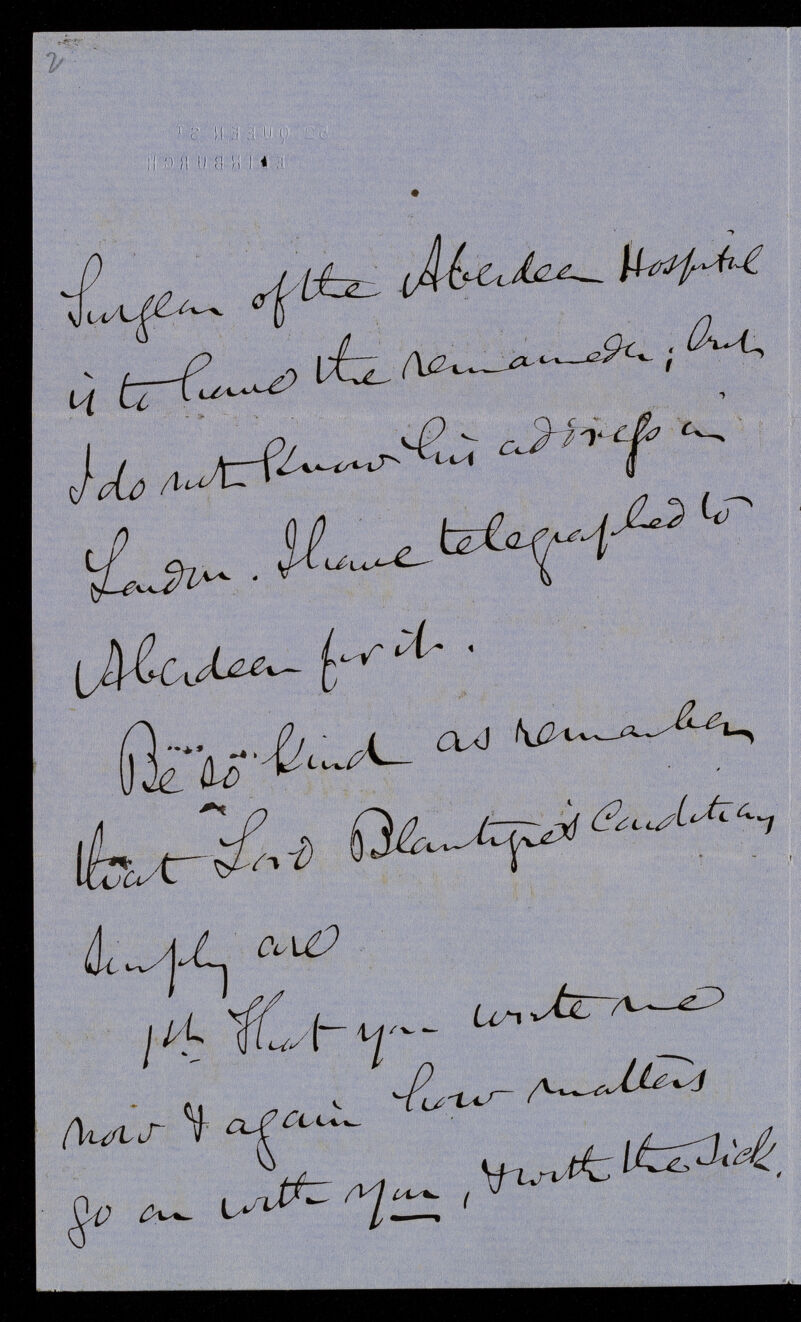 2
52 QUEEN ST
EDINBURGH
Surgeon of the Aberdeen Hospital
is to have the remainder; but
I do not know his address in
London. I have telegraphed to
Aberdeen for it.
Be so kind as remember
that Lord Blantyre's Conditions
simply are
1st That you write me
now & again how matters
go on with you, & with the sick.